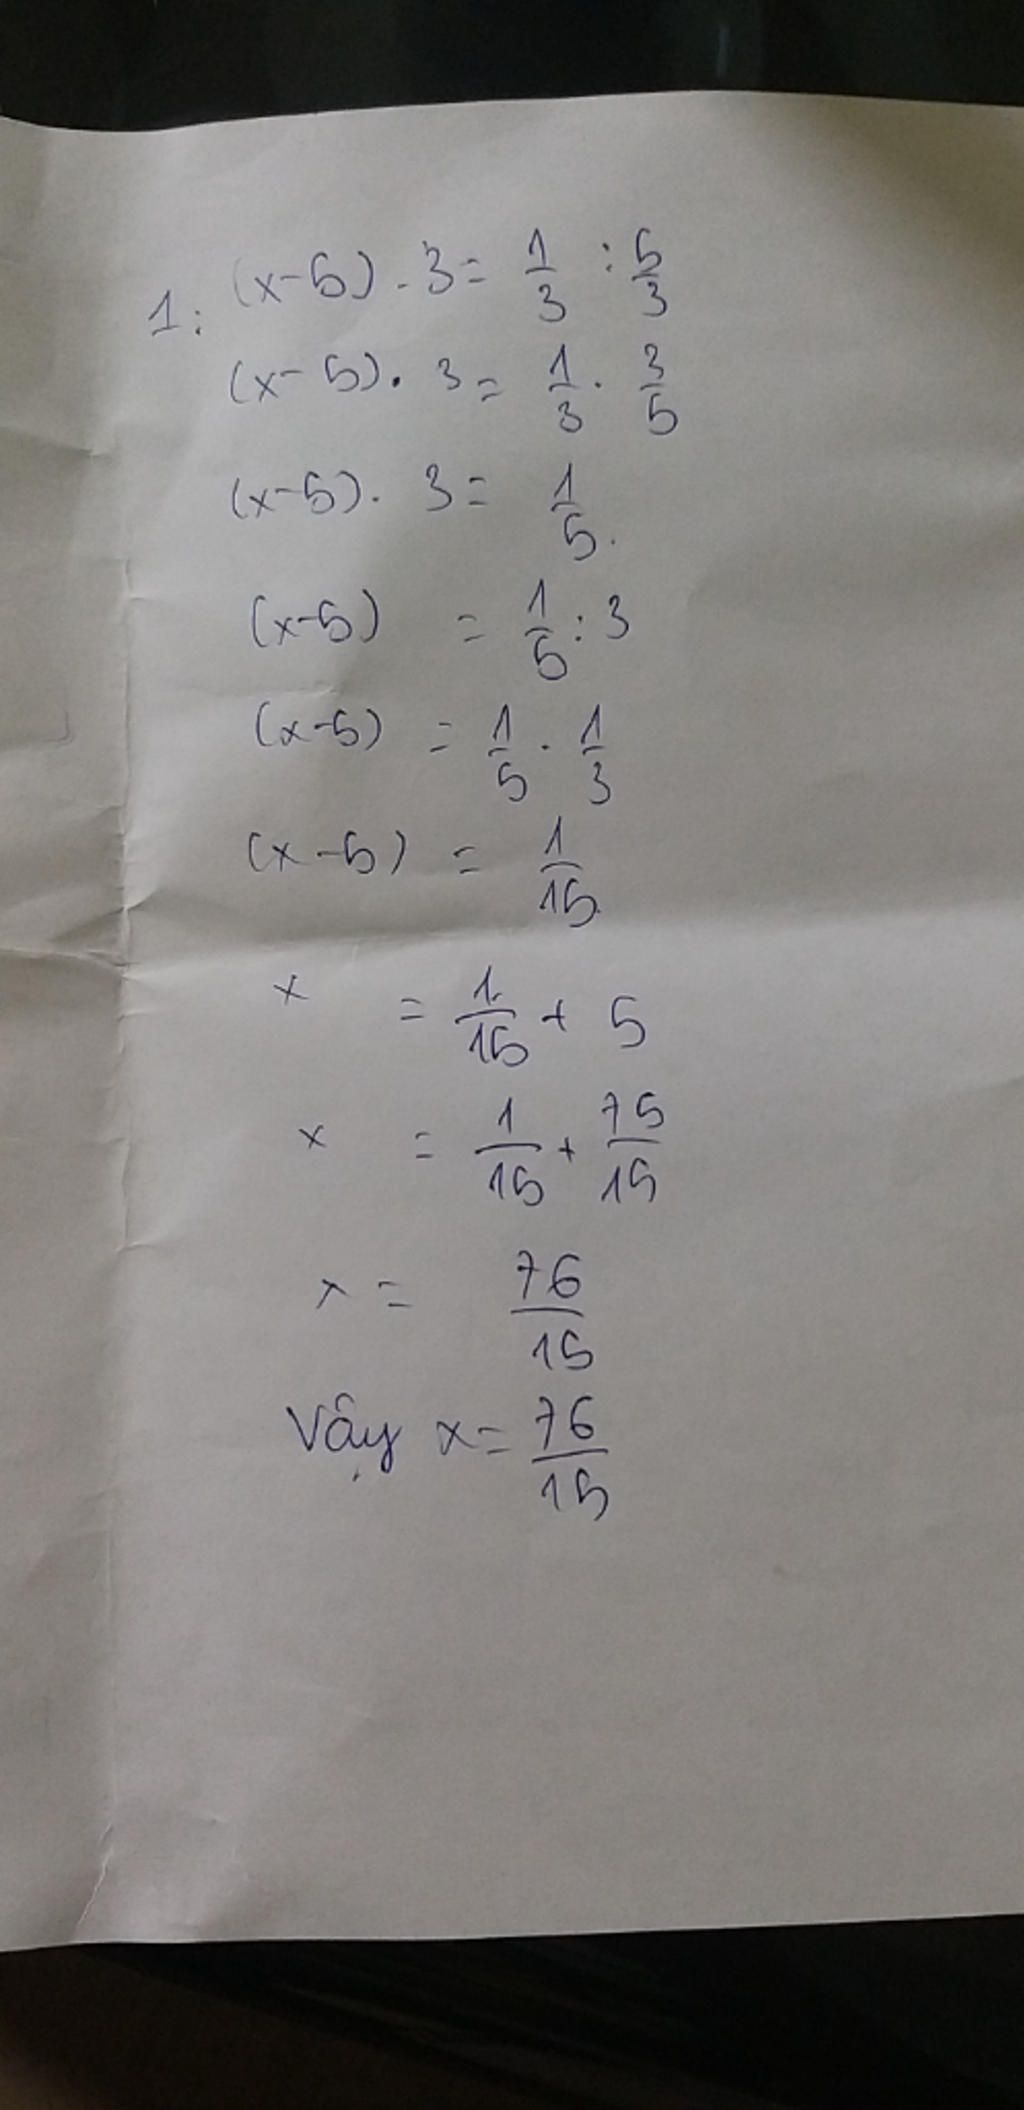 1: (x-5) . 3 = 1/3 : 5/3
(x-5) . 3 = 1/3 . 3/5
(x-5) . 3 = 1/5.
(x-5) = 1/5 : 3
(x-5) = 1/5 . 1/3
(x-5) = 1/15.
x = 1/15 + 5
x = 1/15 + 75/15
x = 76/15
Vậy x = 76/15